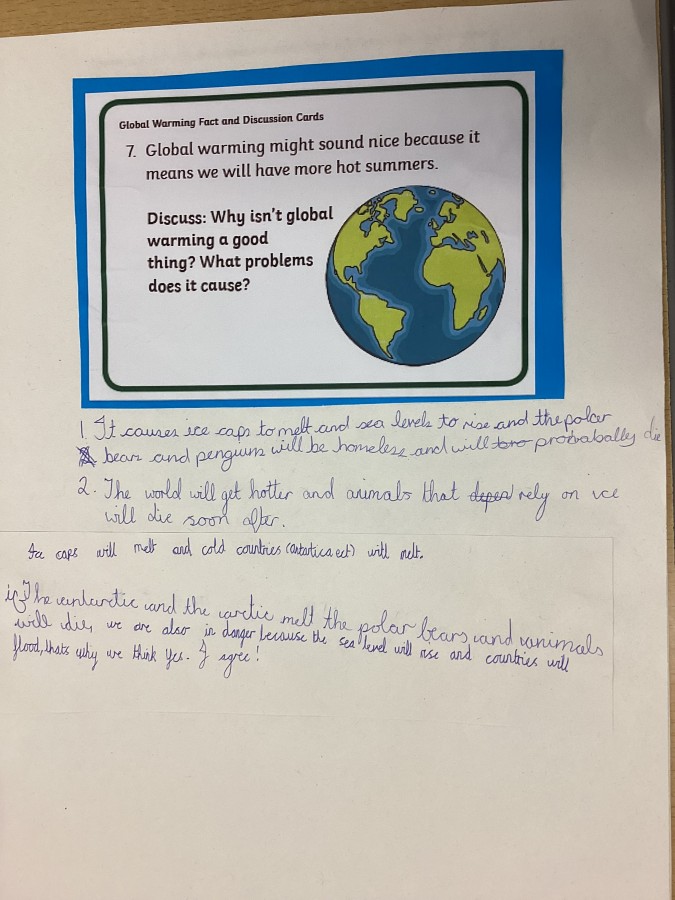 Global Warming Fact and Discussion Cards
7. Global warming might sound nice because it
means we will have more hot summers.
Discuss: Why isn't global
warming a good
thing? What problems
does it cause?
1. It causes ice caps to melt and sea levels to rise and the polar
bears and penguins will be homeless and will probabally die
2. The world will get hotter and animals that depen rely on ice
will die soon after.
Ice caps will melt and cold countries (antartica ect) will melt.
if The antarctic and the arctic melt the polar bears and animals
will die, we are also in danger because the sea level will rise and countries will
flood, thats why we think yes. I agree!